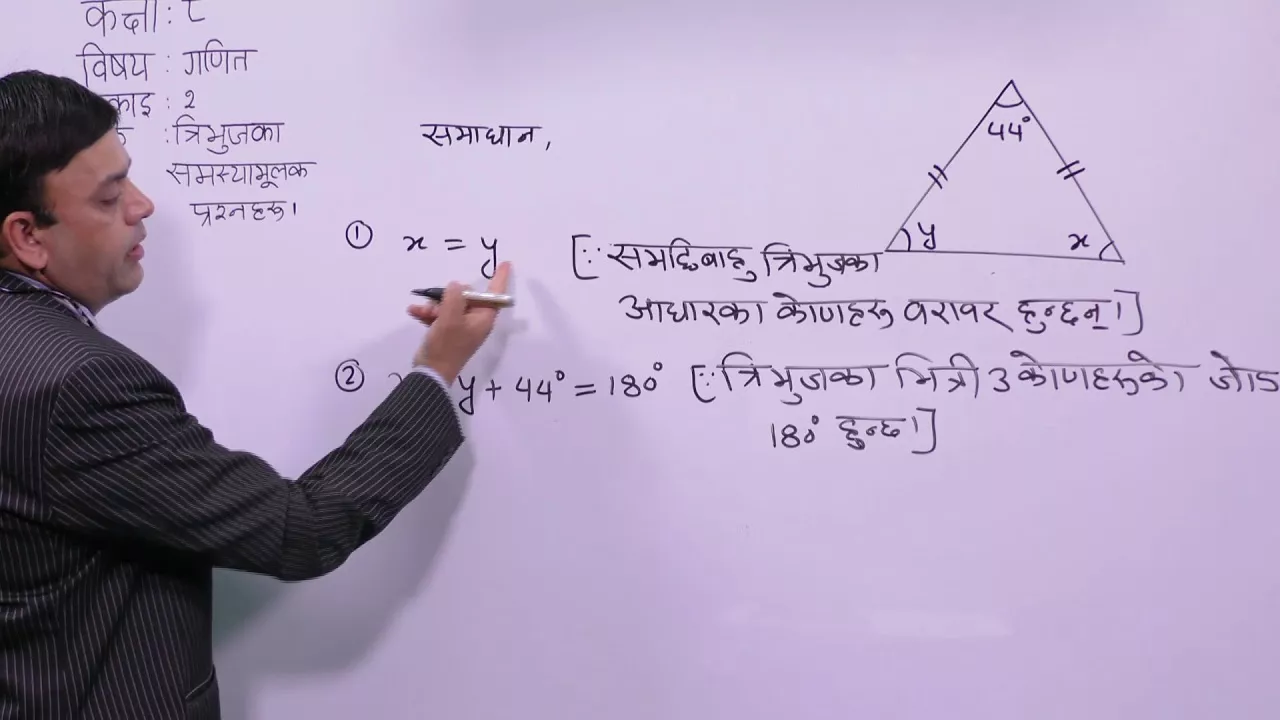 कक्षा : ८
विषय : गणित
काइ : २
: त्रिभुजका
समस्यामूलक
प्रश्नहरू।
समाधान,
① x = y [∵ समद्विबाहु त्रिभुजका
आधारका कोणहरू वरावर हुन्छन्।]
② y + 44° = 180° [∵ त्रिभुजका भित्री 3 कोणहरूको जोड
180° हुन्छ।]
44°
y
x